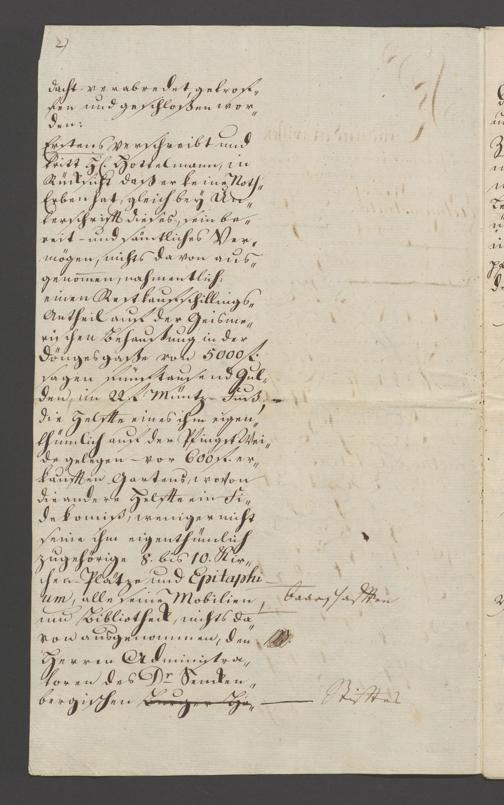 2)
dacht verabredet, getrof-
fen und geschloßen wor-
den:
Erstens verschreibt und
tritt H. Hottelmann, in
Rücksicht daß er keine Noth-
Erben hat, gleich bey Un-
terschrifft dieses, sein be-
reit- und sämtliches Ver-
mögen, nichts davon aus-
genommen, nahmentlich:
einen Restkaufschillings-
Antheil auf der Geisme-
rischen Behaußung in der
Döngesgaße von 5000 f.
sagen fünftausend Gul-
den, im 22 f. Müntz-Fuß,
die Helffte eines ihm eigen-
thümlich auf der Pfingst Wei-
de gelegen- vor 600 f. er-
kaufften Gartens, wovon
die andere Helffte ein Fi-
dekomiß, weniger nicht
seine ihm eigenthümlich
zugehörige 8. bis 10. Kir-
chen-Plätze und Epitaphi-
um, alle seine Mobilien, Baarschafften
und Bibliotheck, nichts da-
von ausgenommen, den
Herren Administra-
toren des Dr. Sencken-
bergischen Stifftes